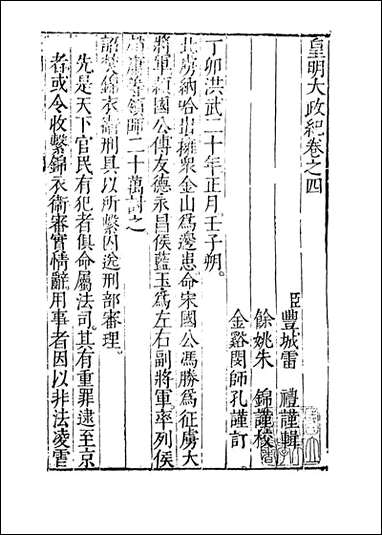 皇明大政紀卷之四
臣豐城雷　禮謹輯
餘姚朱　錦謹校
金谿閔師孔謹訂
丁卯洪武二十年正月壬子朔。
北虜納哈出擁衆金山爲邊患命宋國公馮勝爲征虜大
將軍穎國公傅友德永昌侯藍玉爲左右副將軍率列侯
等領師二十萬討之
詔焚錦衣衛刑具以所繫囚送刑部審理。
先是天下官民有犯者俱命屬法司。其有重罪逮至京
者或令收繫錦衣衛審實情辭用事者因以非法凌虐